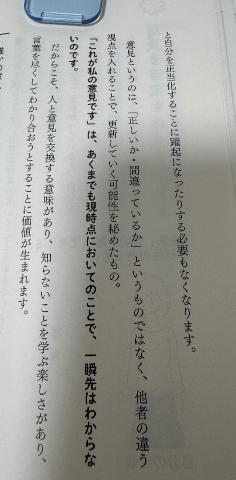 と自分を正当化することに躍起になったりする必要もなくなります。
意見というのは、「正しいか・間違っているか」というものではなく、他者の違う
視点を入れることで、更新していく可能性を秘めたもの。
「これが私の意見です」は、あくまでも現時点においてのことで、一瞬先はわからな
いのです。
だからこそ、人と意見を交換する意味があり、知らないことを学ぶ楽しさがあり、
言葉を尽くしてわかり合おうとすることに価値が生まれます。